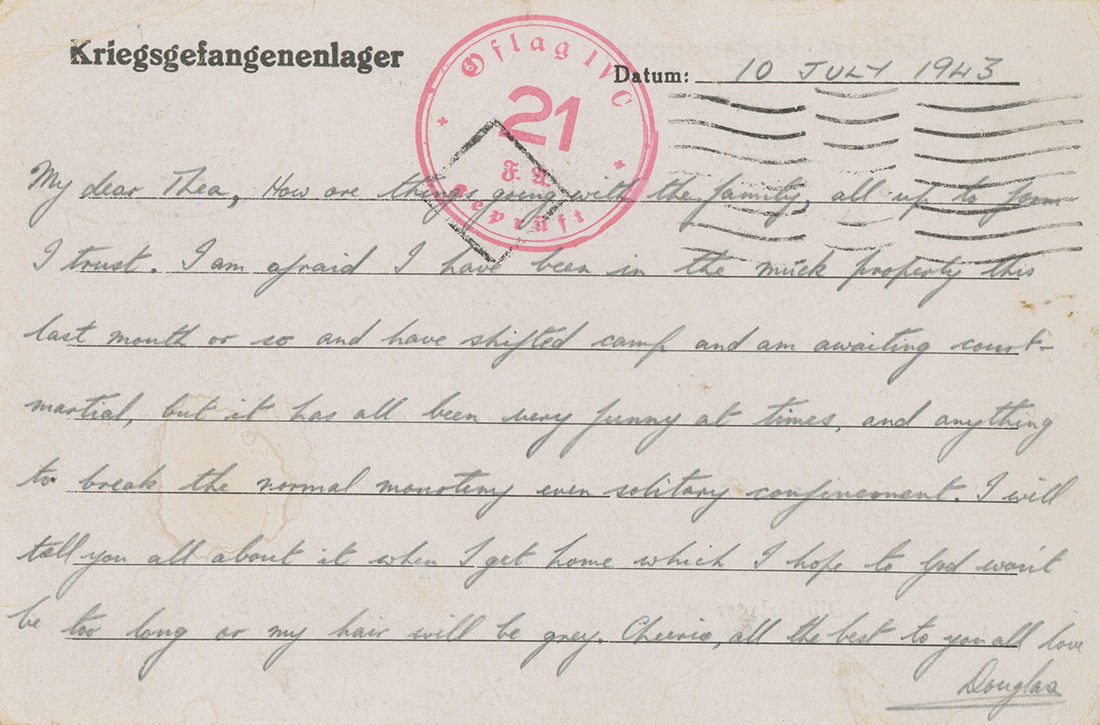 Kriegsgefangenenlager
Oflag IV C
21
Geprüft
Datum: 10 JULY 1943
My dear Thea, How are things going with the family, all up to form
I trust. I am afraid I have been in the muck properly this
last month or so and have shifted camp and am awaiting court-
martial, but it has all been very funny at times, and anything
to break the normal monotiny even solitary confinement. I will
tell you all about it when I get home which I hope to God won't
be too long or my hair will be grey. Cheerio, all the best to you all love
Douglas